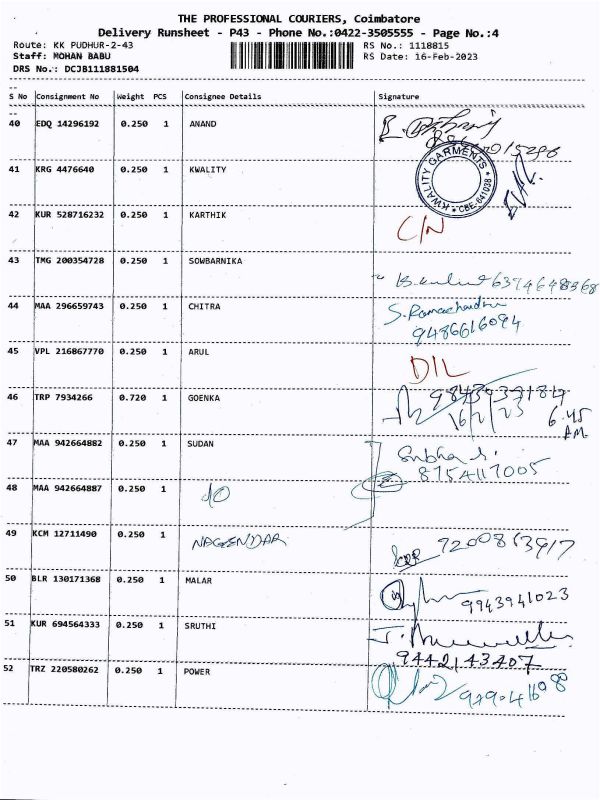 THE PROFESSIONAL COURIERS, Coimbatore
Delivery Runsheet - P43 - Phone No.:0422-3505555 - Page No.:4
Route: KK PUDHUR-2-43 RS No.: 1118815
Staff: MOHAN BABU RS Date: 16-Feb-2023
DRS No.: DCJB111881504
S No Consignment No Weight PCS Consignee Details Signature
40 EDQ 14296192 0.250 1 ANAND
41 KRG 4476640 0.250 1 KWALITY KWALITY GARMENTS * CBE-641038 *
42 KUR 528716232 0.250 1 KARTHIK C/N
43 TMG 200354728 0.250 1 SOWBARNIKA 6374648368
44 MAA 296659743 0.250 1 CHITRA S. Ramachandran
9486616094
45 VPL 216867770 0.250 1 ARUL D/L
46 TRP 7934266 0.720 1 GOENKA
16/2/23 6.45
AM.
47 MAA 942664882 0.250 1 SUDAN Subha S.
8754117005
48 MAA 942664887 0.250 1 do
49 KCM 12711490 0.250 1 NAGENDAR 7200863917
50 BLR 130171368 0.250 1 MALAR 9943941023
51 KUR 694564333 0.250 1 SRUTHI
9442143407
52 TRZ 220580262 0.250 1 POWER